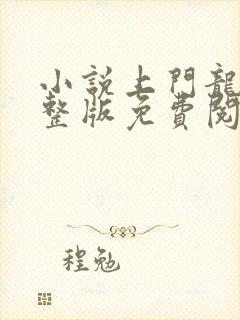 小說上門龍
整版免費閱
程勉